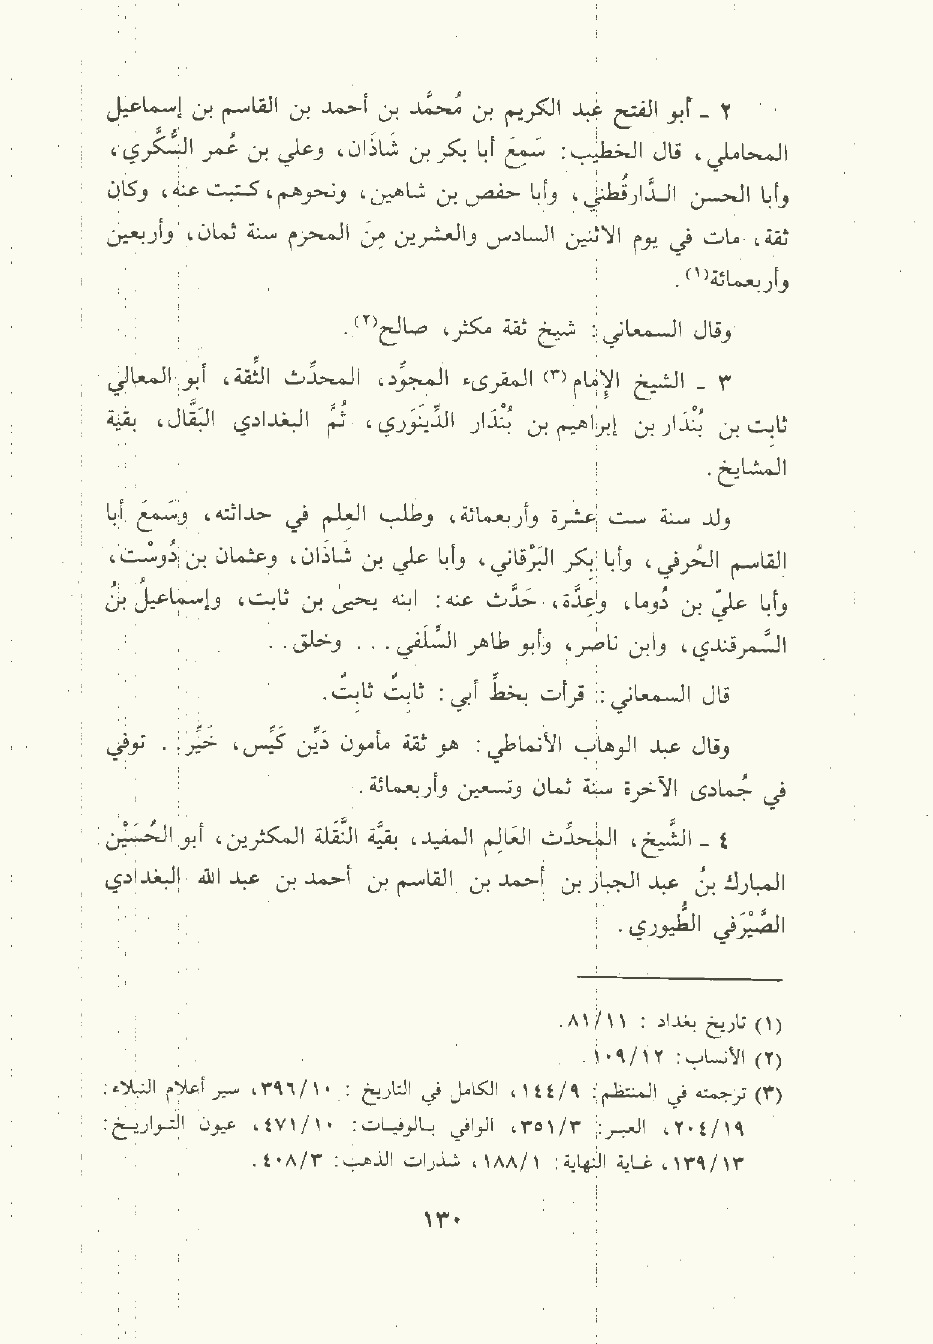 ٢ ـ أبو الفتح عبد الكريم بن مُحمَّد بن أحمد بن القاسم بن إسماعيل
المحاملي، قال الخطيب: سَمِعَ أبا بكر بن شاذَان، وعلي بن عُمر السُّكَّري،
وأبا الحسن الدَّارقُطني، وأبا حفص بن شاهين، ونحوهم، كتبت عنه، وكان
ثقة، مات في يوم الاثنين السادس والعشرين منَ المحرم سنة ثمان، وأربعين
وأربعمائة(١).
وقال السمعاني: شيخ ثقة مكثر، صالح(٢).
٣ ـ الشيخ الإمام(٣) المقرىء المجوِّد، المحدِّث الثِّقة، أبو المعالي
ثابت بن بُنْدَار بن إبراهيم بن بُنْدَار الدِّينَوَري، ثُمَّ البغدادي البَقَّال، بقية
المشايخ.
ولد سنة ست عشرة وأربعمائة، وطلب العلم في حداثته، وسَمعَ أبا
القاسم الخُرفي، وأبا بكر البَرْقاني، وأبا علي بن شَاذَان، وعثمان بن دُوسْت،
وأبا عليّ بن دُوما، وعِدَّة، حَدَّث عنه: ابنه يحيىٰ بن ثابت، وإسماعيلُ بنُ
السَّمرقندي، وابن ناصر، وأبو طاهر السِّلَفي... وخلق..
قال السمعاني: قرأت بخطِّ أبي: ثابتٌ ثابتٌ.
وقال عبد الوهاب الأنماطي: هو ثقة مأمون دَيِّنٌ كَيِّسٌ، خَيِّر. توفي
في جُمادى الآخرة سنة ثمان وتسعين وأربعمائة.
٤ ـ الشَّيخ، المحدِّث العَالِم المفيد، بقيَّة النَّقَلة المكثرين، أبو الحُسَيْن
المبارك بنُ عبد الجبار بن أحمد بن القاسم بن أحمد بن عبد الله البغدادي
الصَّيْرَفي الطُّيوري.
(١) تاريخ بغداد : ٨١/١١.
(٢) الأنساب: ١٠٩/١٢.
(٣) ترجمته في المنتظم: ١٤٤/٩، الكامل في التاريخ : ٣٩٦/١٠، سير أعلام النبلاء:
٢٠٤/١٩، العبر: ٣٥١/٣، الوافي بالوفيات: ٤٧١/١٠، عيون التواريخ:
١٣٩/١٣، غاية النهاية: ١٨٨/١، شذرات الذهب: ٤٠٨/٣.
١٣٠